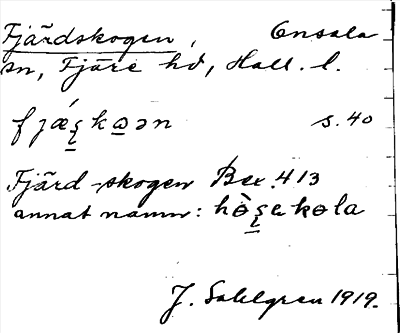 Fjärdskogen, Onsala
sn, Fjäre hd, Hall. l.
s. 40
Fjärd-skogen Bex. 413
annat namn:
J. Sahlgren 1919.